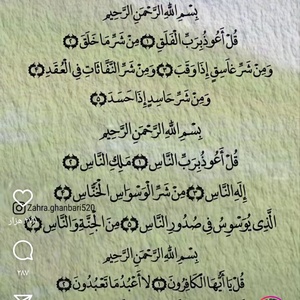 بِسْمِ اللهِ الرَّحْمَنِ الرَّحِيمِ
قُلْ أَعُوذُ بِرَبِّ الْفَلَقِ ۝١ مِنْ شَرِّ مَا خَلَقَ ۝٢
وَمِنْ شَرِّ غَاسِقٍ إِذَا وَقَبَ ۝٣ وَمِنْ شَرِّ النَّفَّاثَاتِ فِي الْعُقَدِ ۝٤
وَمِنْ شَرِّ حَاسِدٍ إِذَا حَسَدَ ۝٥
بِسْمِ اللهِ الرَّحْمَنِ الرَّحِيمِ
قُلْ أَعُوذُ بِرَبِّ النَّاسِ ۝١ مَلِكِ النَّاسِ ۝٢
إِلَهِ النَّاسِ ۝٣ مِنْ شَرِّ الْوَسْوَاسِ الْخَنَّاسِ ۝٤
Zahra.ghanbari520
الَّذِي يُوَسْوِسُ فِي صُدُورِ النَّاسِ ۝٥ مِنَ الْجِنَّةِ وَالنَّاسِ ۝٦
بِسْمِ اللهِ الرَّحْمَنِ الرَّحِيمِ
٢٨٧
قُلْ يَا أَيُّهَا الْكَافِرُونَ ۝١ لَا أَعْبُدُ مَا تَعْبُدُونَ ۝٢